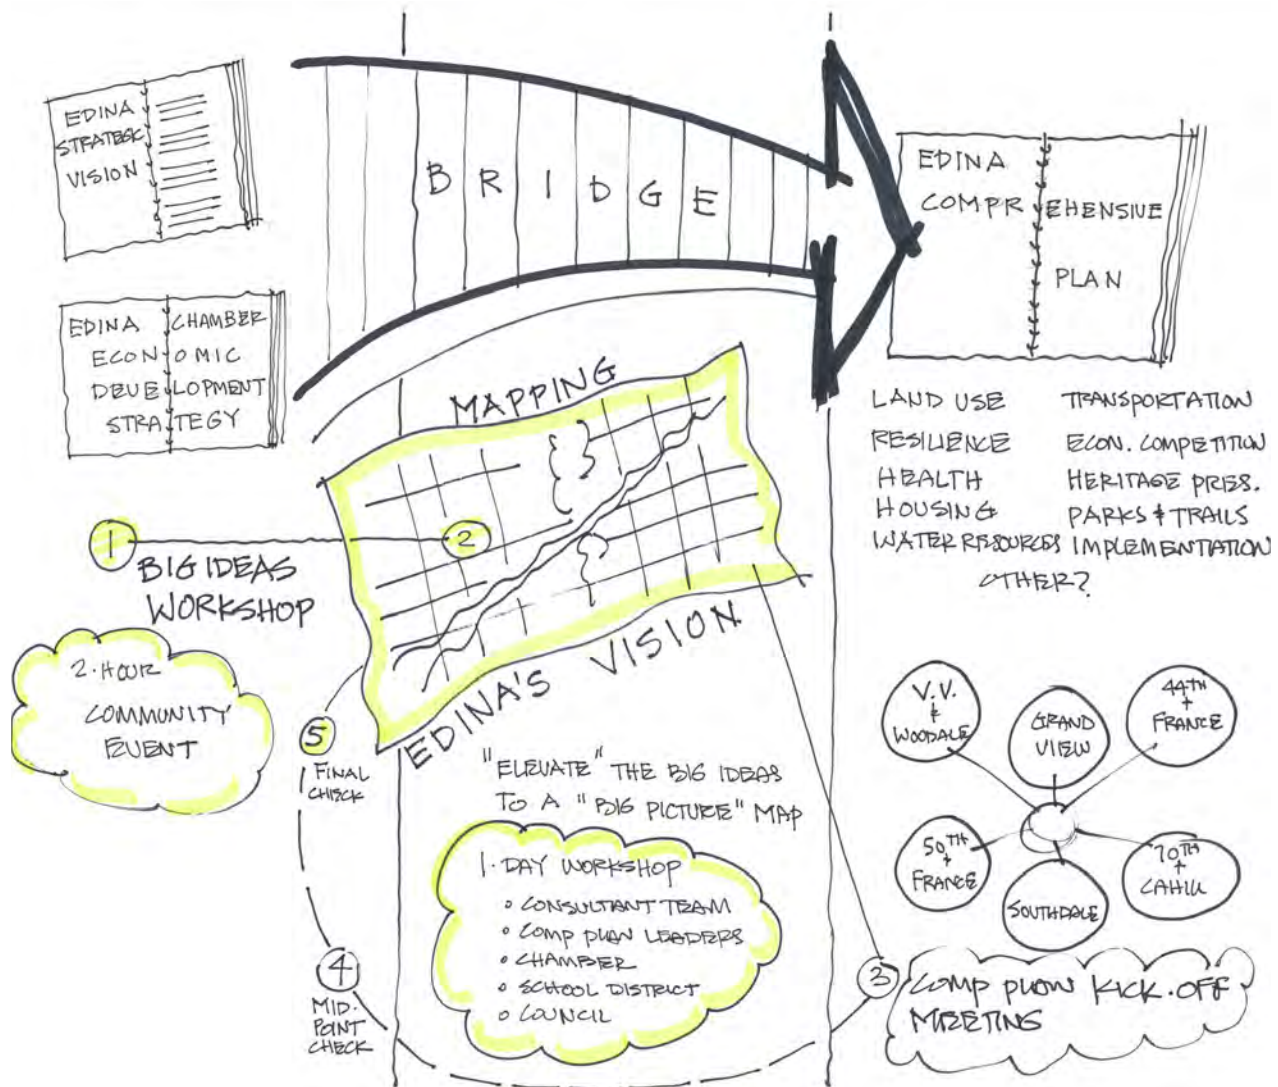 EDINA
STRATEGIC
VISION
BRIDGE
EDINA
COMPREHENSIVE
PLAN
EDINA CHAMBER
ECONOMIC
DEVELOPMENT
STRATEGY
MAPPING
EDINA'S VISION
LAND USE
RESILIENCE
HEALTH
HOUSING
WATER RESOURCES
TRANSPORTATION
ECON. COMPETITION
HERITAGE PRES.
PARKS & TRAILS
IMPLEMENTATION
OTHER?
1
BIG IDEAS
WORKSHOP
2
2·HOUR
COMMUNITY
EVENT
5
FINAL
CHECK
"ELEVATE" THE BIG IDEAS
TO A "BIG PICTURE" MAP
1·DAY WORKSHOP
• CONSULTANT TEAM
• COMP PLAN LEADERS
• CHAMBER
• SCHOOL DISTRICT
• COUNCIL
4
MID·
POINT
CHECK
V.V.
&
WOODALE
GRAND
VIEW
44TH
+
FRANCE
50TH
+
FRANCE
SOUTHDALE
70TH
+
CAHILL
3
COMP PLAN KICK·OFF
MEETING